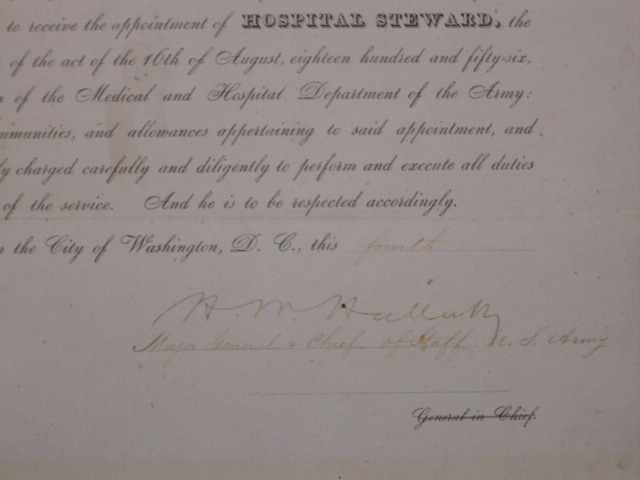 to receive the appointment of HOSPITAL STEWARD, the
of the act of the 16th of August, eighteen hundred and fifty-six,
of the Medical and Hospital Department of the Army:
mmunities, and allowances appertaining to said appointment, and
ly charged carefully and diligently to perform and execute all duties
of the service. And he is to be respected accordingly.
the City of Washington, D. C., this fourth
H. W. Halleck
Major General & Chief of Staff U. S. Army
General in Chief.